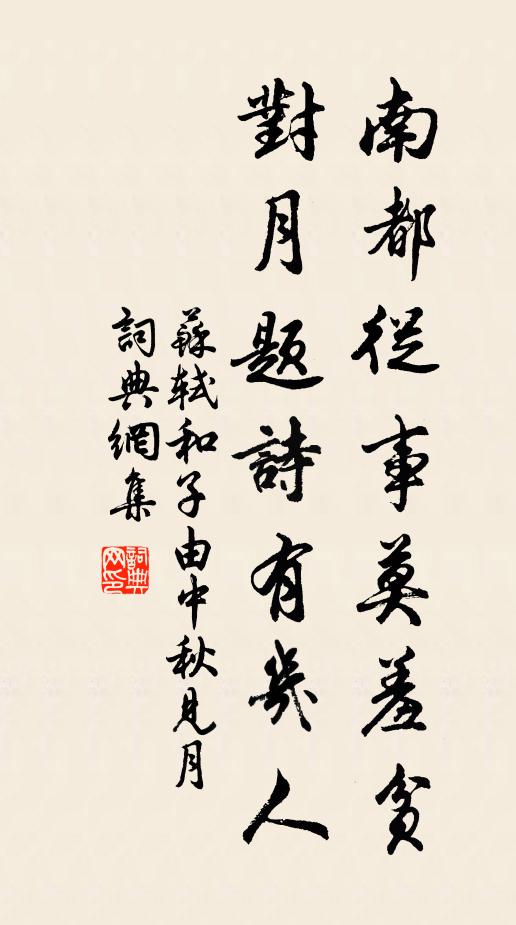 南都從事莫羞貧
對月題詩有幾人
蘇軾和子由中秋見月
詞典網集
詞典
网印